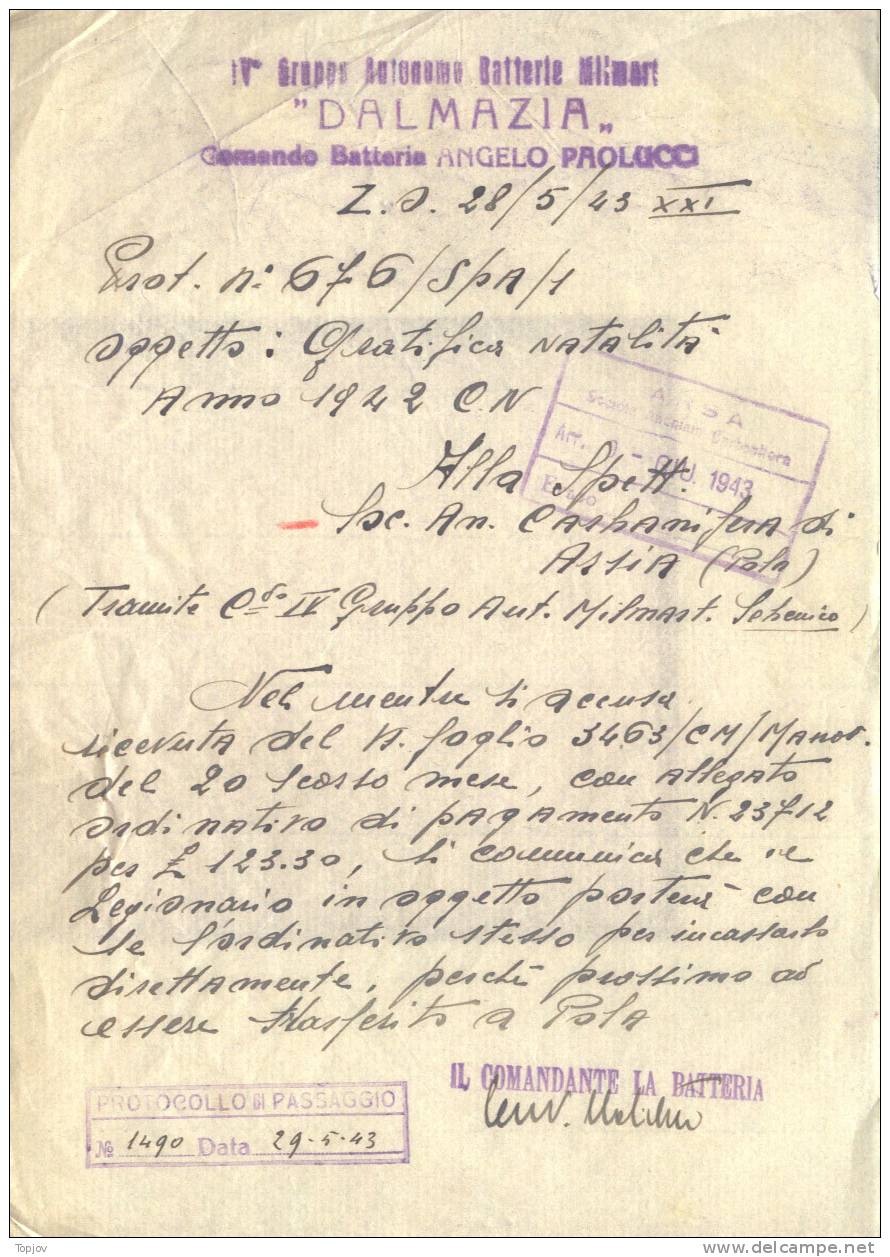 IV° Gruppo Autonomo Batterie Milmart
"DALMAZIA"
Comando Batteria ANGELO PAOLUCCI
Z.O. 28/5/43 XXI
Prot. N: 676/SPA/1
oggetto: Gratifica natalità
Anno 1942 C.N
ARSA
Società Anonima Carbonifera
Arr. - GIU. 1943
Evaso
Alla Spett.
Soc. An. Carbonifera di
Arsia (Pola)
(Tramite C.do IV Gruppo Aut. Milmart. Sebenico)
Nel mentre si accusa
ricevuta del V. foglio 3463/CM/Manod.
del 20 scorso mese, con allegato
ordinativo di pagamento N. 23712
per £ 123.30, si comunica che il
Legionario in oggetto porterà con
se l'ordinativo stesso per incassarlo
direttamente, perchè prossimo ad
essere trasferito a Pola
IL COMANDANTE LA BATTERIA
PROTOCOLLO DI PASSAGGIO
№ 1490 Data 29-5-43
Topjov
www.delcampe.net